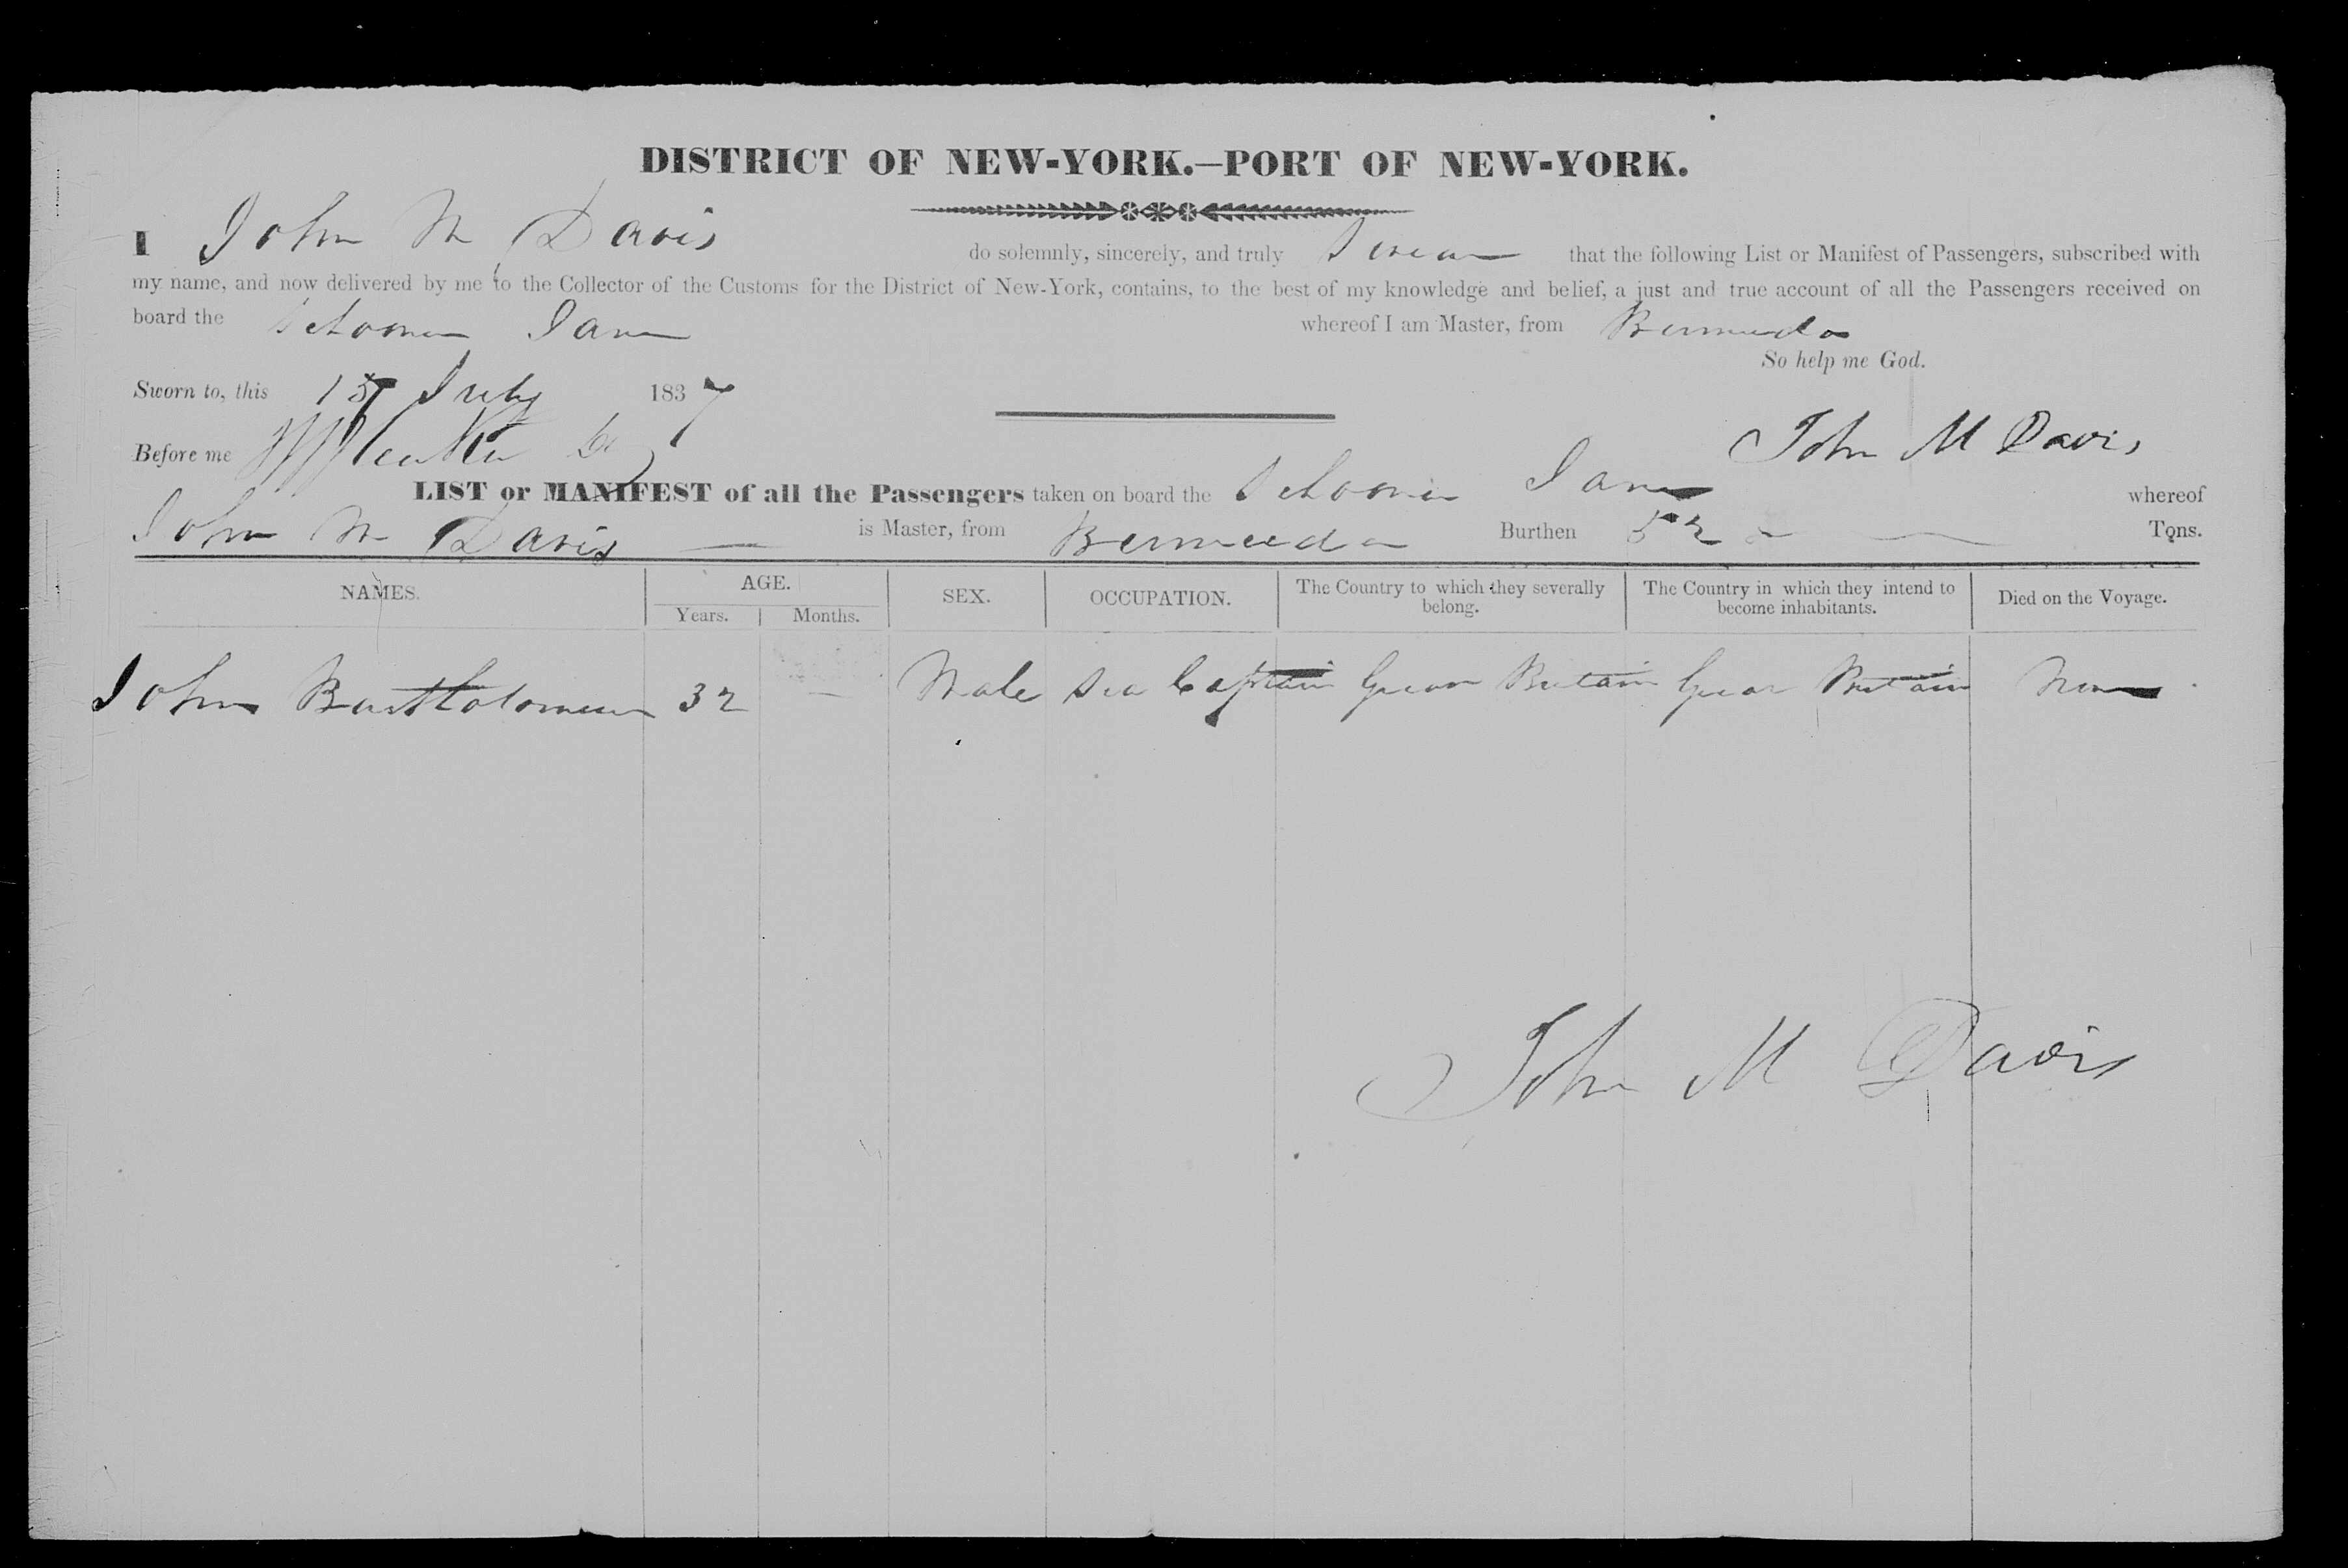 DISTRICT OF NEW-YORK.—PORT OF NEW-YORK.
I John M Davis do solemnly, sincerely, and truly Swear that the following List or Manifest of Passengers, subscribed with
my name, and now delivered by me to the Collector of the Customs for the District of New-York, contains, to the best of my knowledge and belief, a just and true account of all the Passengers received on
board the Schooner Jane whereof I am Master, from Bermuda
So help me God.
Sworn to, this 15 July 1837
Before me
John M Davis
LIST or MANIFEST of all the Passengers taken on board the Schooner Jane whereof
John M Davis is Master, from Bermuda Burthen 52 Tons.
NAMES. AGE. SEX. OCCUPATION. The Country to which they severally belong. The Country in which they intend to become inhabitants. Died on the Voyage.
Years. Months.
John Bartholomew 32 — Male Sea Captain Great Britain Great Britain None
John M Davis